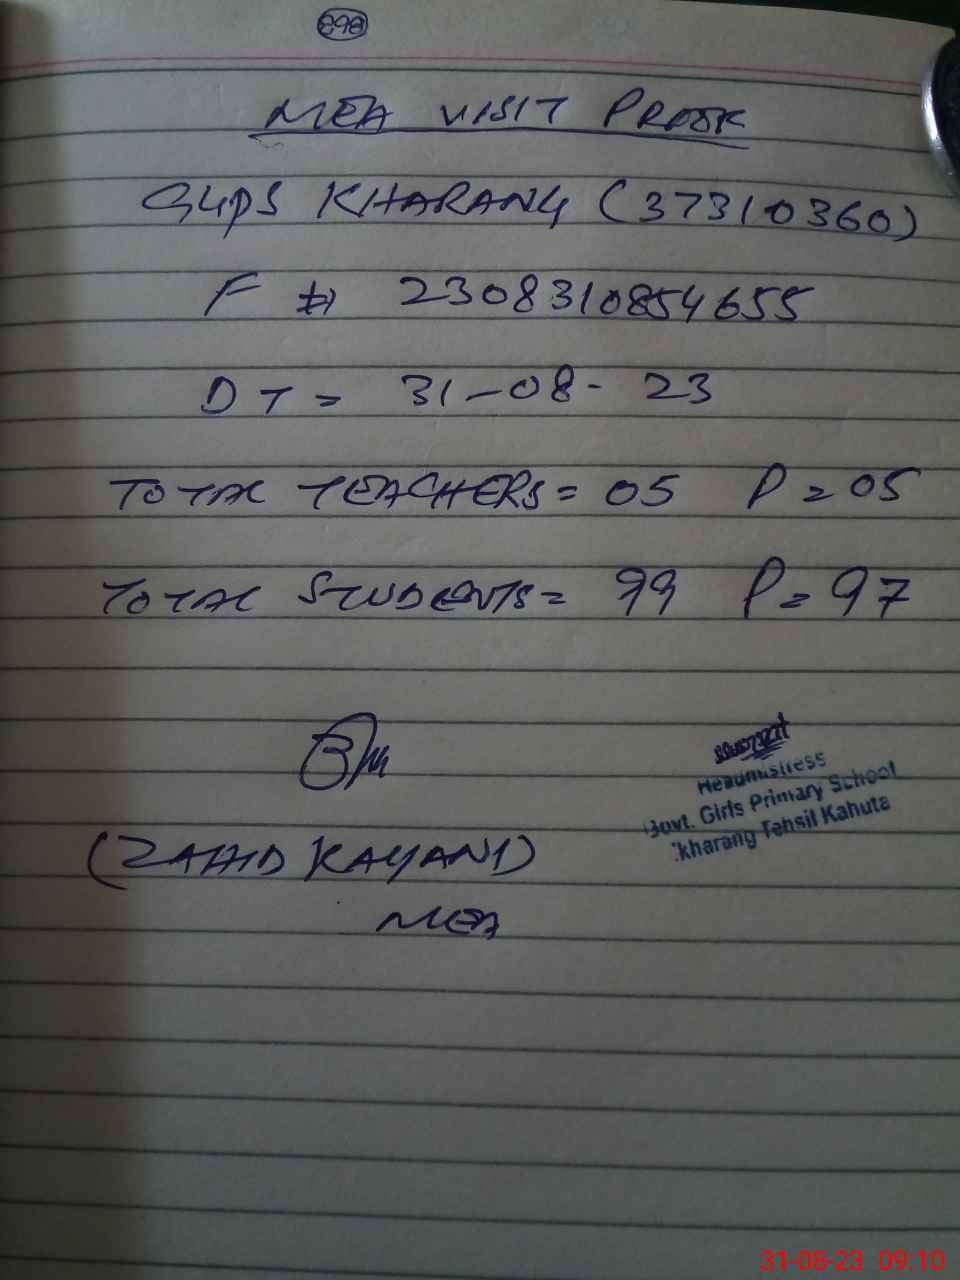 MEA VISIT PROOF
GGPS KHARANG (37310360)
F # 2308310854655
DT = 31-08-23
TOTAL TEACHERS = 05 P = 05
TOTAL STUDENTS = 99 P = 97
(ZAHID KAYANI)
MEA
Headmistress
Govt. Girls Primary School
kharang Tehsil Kahuta
31-08-23 09:10